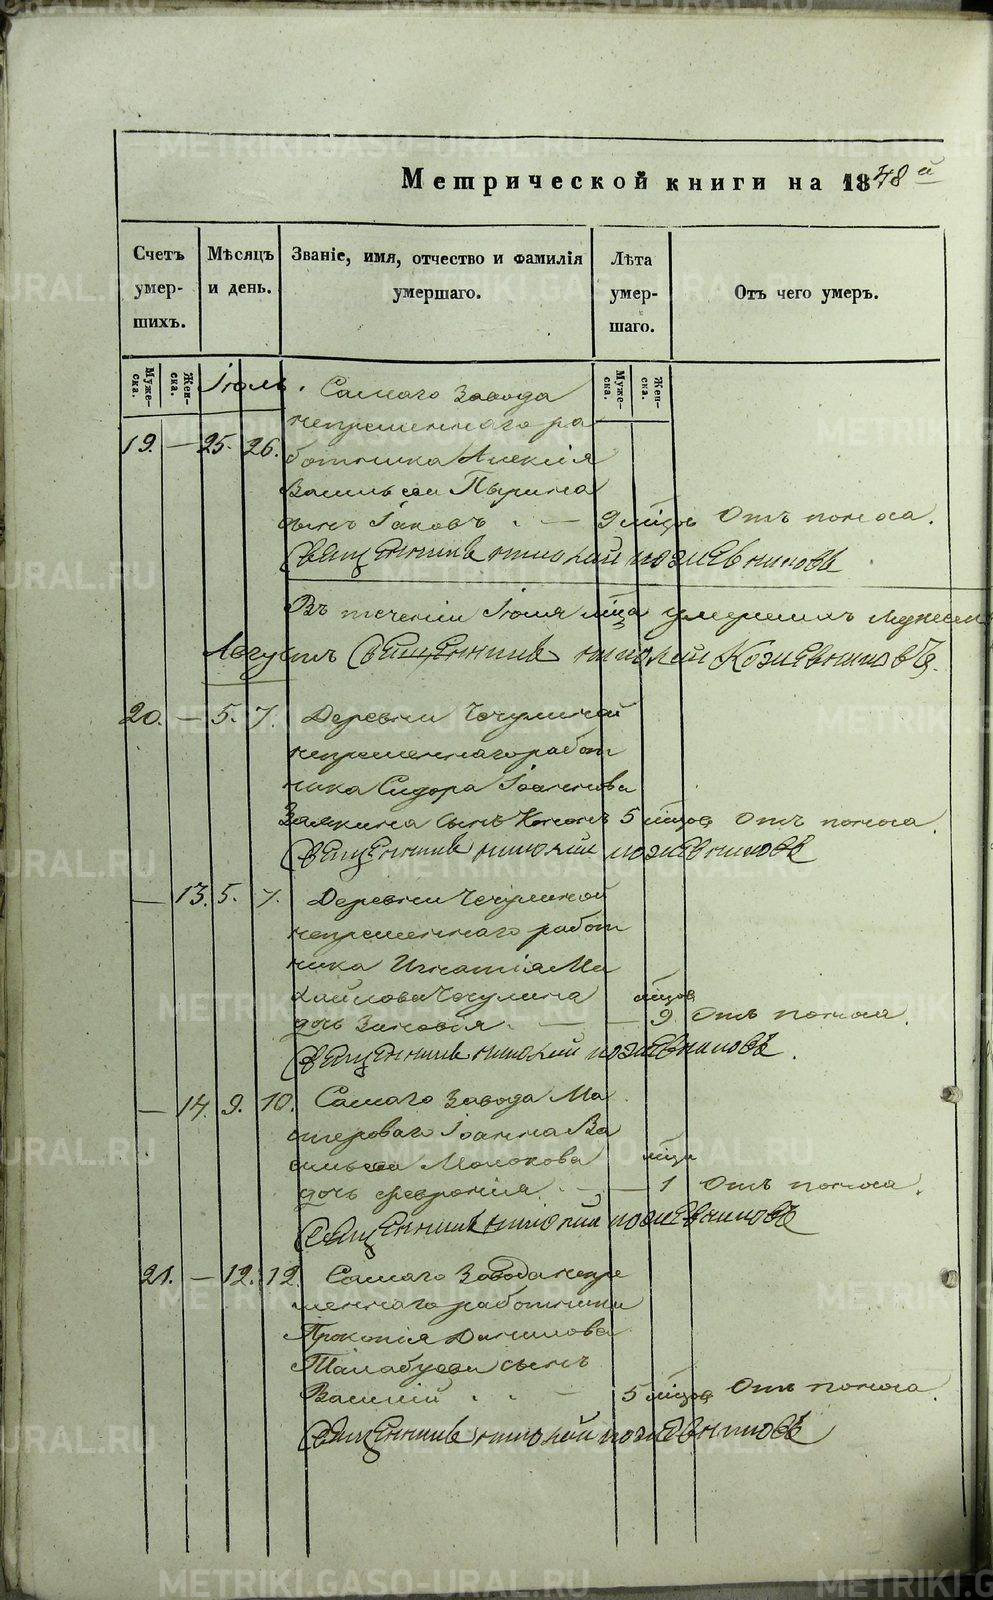 Метрической книги на 1848й
Счетъ умер-шихъ.
Мѣсяцъ и день.
Званіе, имя, отчество и фамилія умершаго.
Лѣта умер-шаго.
Отъ чего умеръ.
Муже-ска.
Жен-ска.
Муже-ска.
Жен-ска.
Іюль.
Самаго Завода
непременнаго ра
19. — 25. 26. ботника Алексія
Васильева Пырина
сынъ Іаковъ — 9 мцовъ Отъ поноса.
Священникъ Николай Кожевниковъ
Въ теченіи Іюля мца умершихъ
Августъ Священникъ Николай Кожевниковъ.
20. — 5. 7. Деревни Чечулиной
непременнаго работ
ника Сидора Іоаннова
Заякина сынъ Кононъ 5 мцовъ Отъ поноса.
Священникъ Николай Кожевниковъ
— 13. 5. 7. Деревни Чечулиной
непременнаго работ
ника Игнатія Ми
хайлова Чечулина мцовъ
дочь Зиновія. — — 9 Отъ поноса.
Священникъ Николай Кожевниковъ.
— 14. 9. 10. Самаго Завода Ма
стероваго Іоанна Ва
сильева Молокова мца
дочь Феврония. — — 1 Отъ поноса.
Священникъ Николай Кожевниковъ
21. — 12. 12. Самаго Завода непре
меннаго работника
Прокопія Данилова
сынъ
Василій — 5 мцовъ Отъ поноса.
Священникъ Николай Кожевниковъ
METRIKI.GASO-URAL.RU